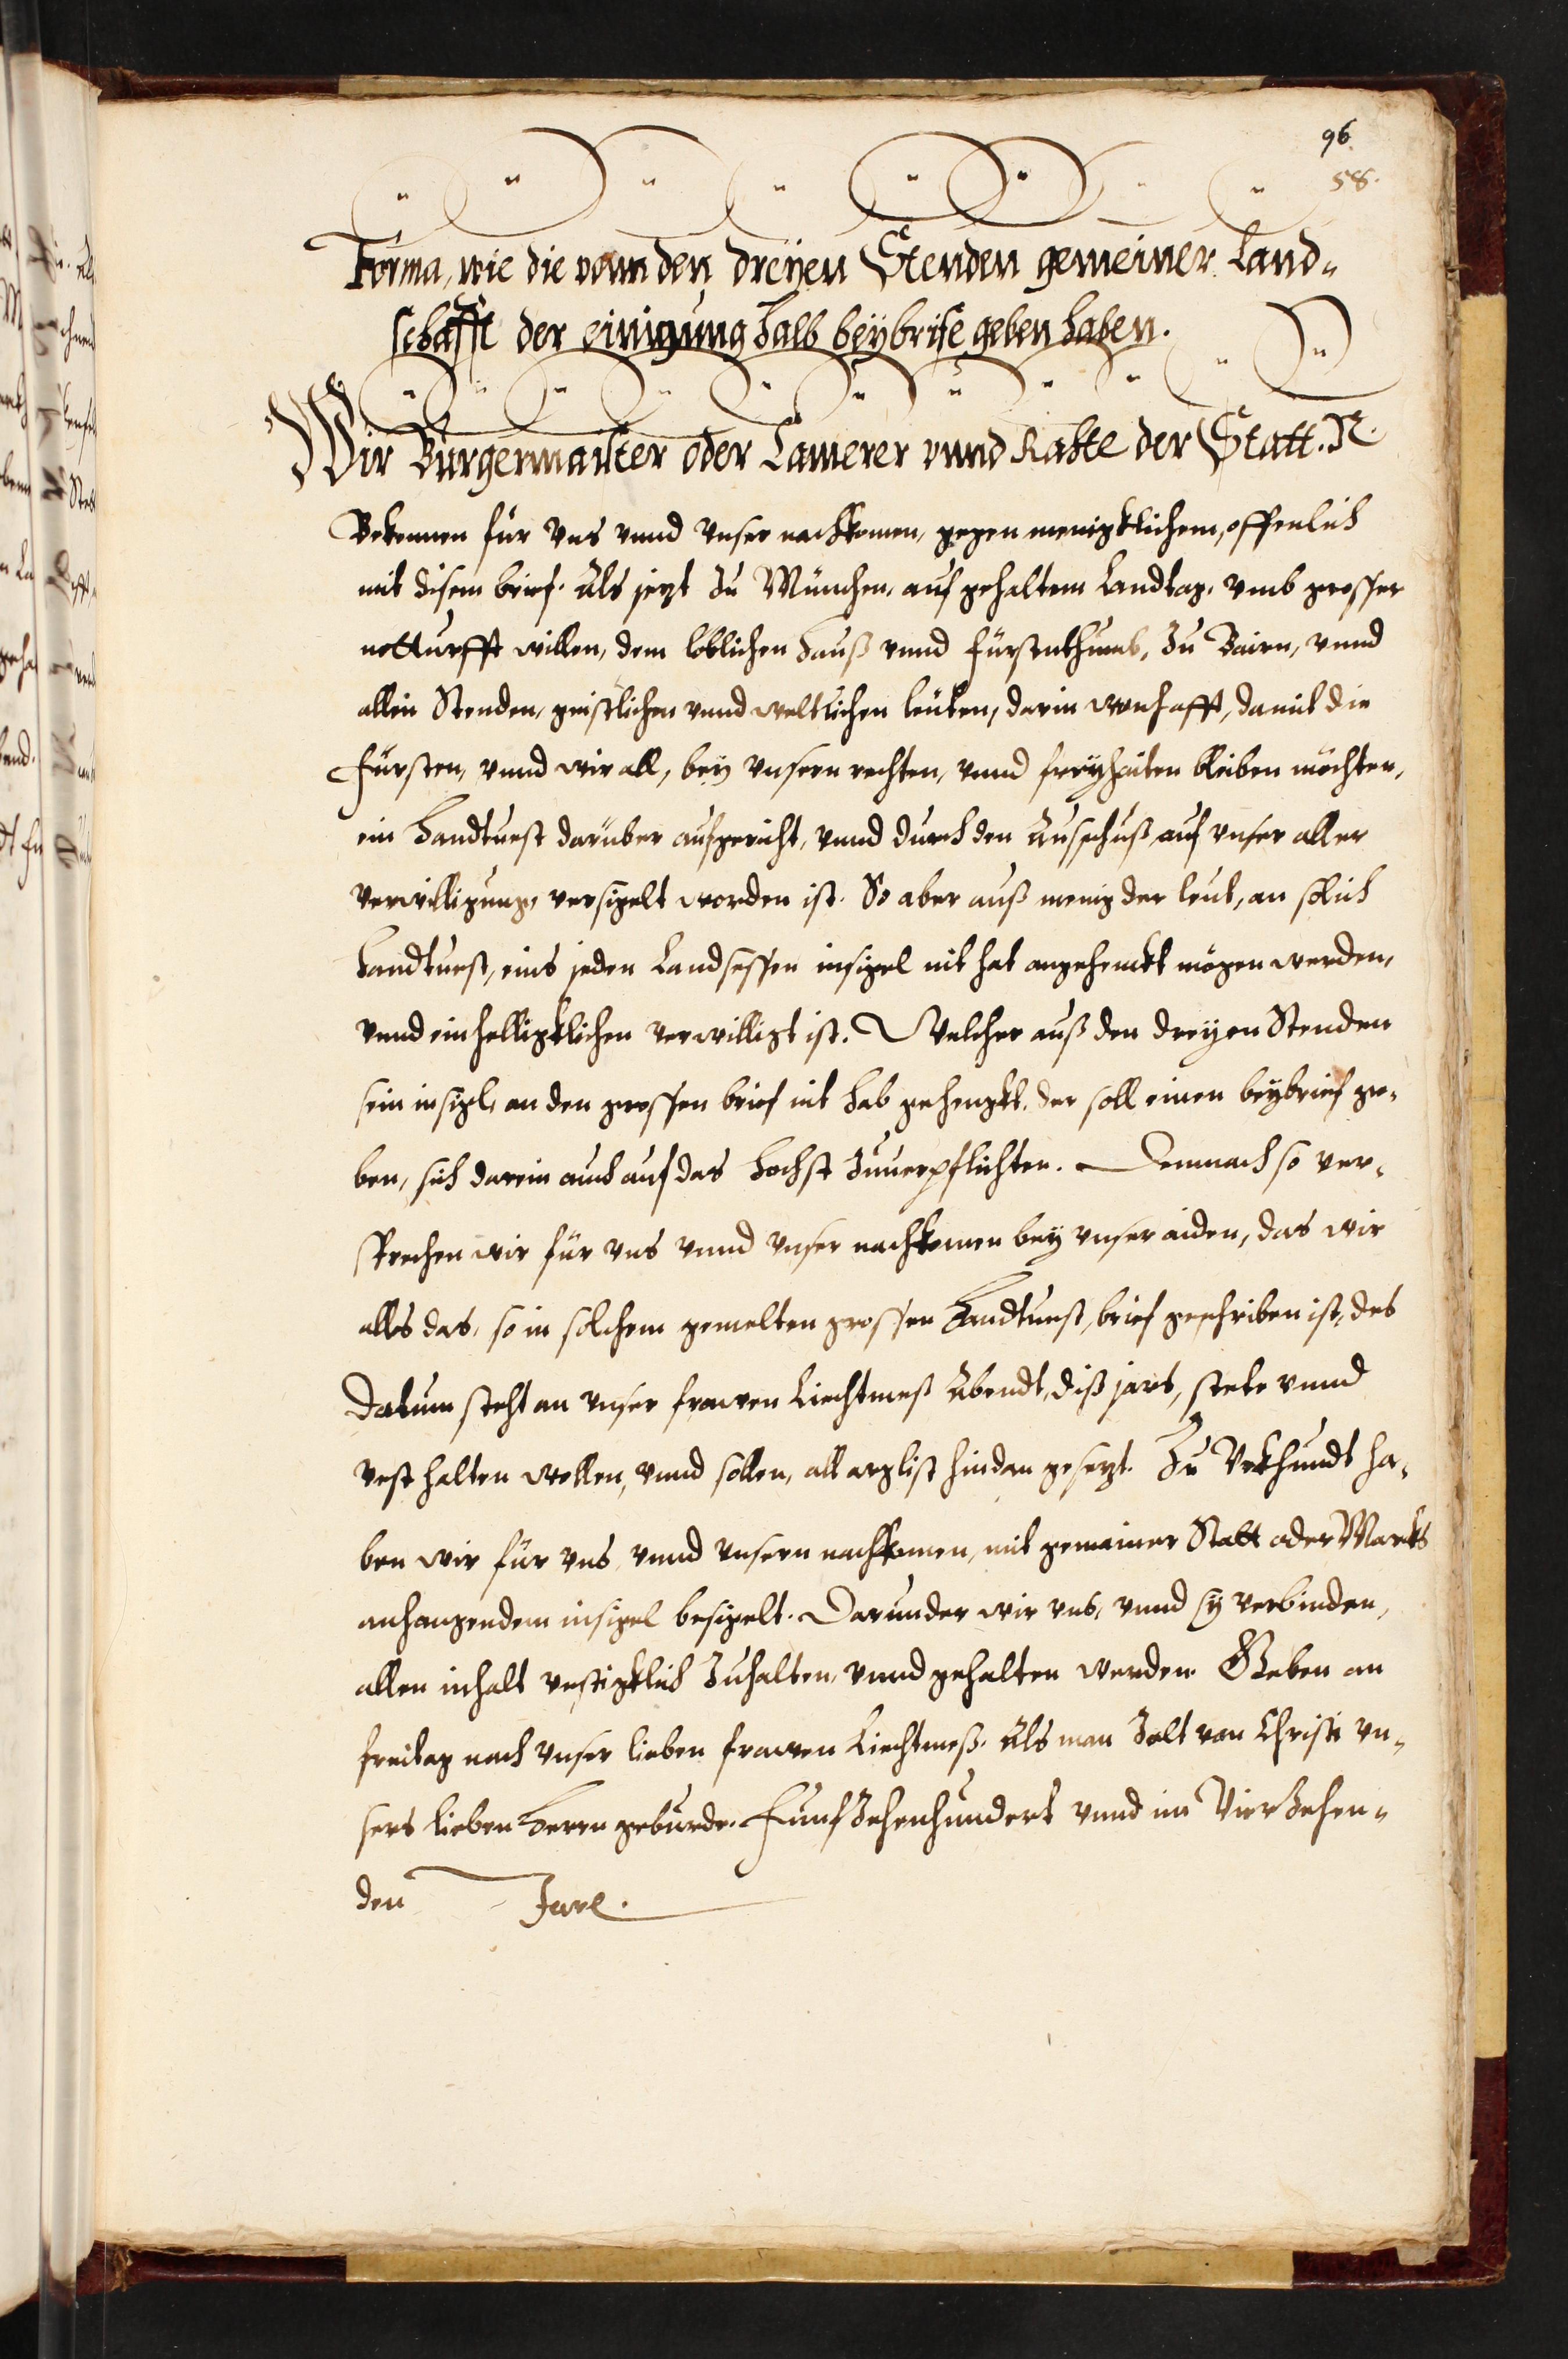 96
58.
Forma, wie die vonn den dreyen Stenden gemeiner Land-
schafft der einigung halb beybrife geben haben.
Wir Burgermaister oder Camerer vnnd Rahte der Statt. N.
Bekennen für vns vnnd vnser nachkomen, gegen menigklichem, offenlich
mit disem brief. Als jezt Zu München, auf gehaltem Landtag, vmb grosser
notturfft willen, dem loblichen Hauß vnnd Fürstenthumb, Zu Bairn, vnnd
allen Stenden, geistlichen vnnd weltlichen leuten, darin wonhafft, damit die
Fürsten, vnnd wir all, bey vnsern rechten, vnnd freyhaiten bleiben möchten,
ein Handtuest darüber aufgericht, vnnd durch den Ausschuß auf vnser aller
verwilligung, versigelt worden ist. So aber auß menig der leut, an solich
handtuest, eins jeden Landsessen insigel nit hat angehenckt mögen werden,
vnnd einhelligklichen verwilligt ist. Welcher auß den dreyen Stenden
sein insigl, an den grossen brief nit hab gehengkt, der soll einen beybrief ge-
ben, sich darein auch auf das Hochst Zuuerpflichten. Demnach so ver-
sprechen wir für vns vnnd vnser nachkomen bey vnser aiden, das wir
alles das, so in solchem gemelten grossen Handtuest, brief geschriben ist, des
Datum steht an vnser frawen Liechtmeß Abendt, diß jars, stete vnnd
vest halten wollen, vnnd sollen, all arglist hindan gesezt. Zu Vrkhundt ha-
ben wir für vns, vnnd vnsern nachkomen, mit gemainer Statt oder Markts
anhangendem insigel besigelt. Darunder wir vns, vnnd sy verbinden,
allen inhalt vestigklich Zuhalten, vnnd gehalten werden. Geben an
freitag nach vnser lieben frawen Liechtmeß. Als man Zalt von Christi vn-
sers lieben Herrn geburde. Funfzehenhundert vnnd im Vierzehen-
den Jare.